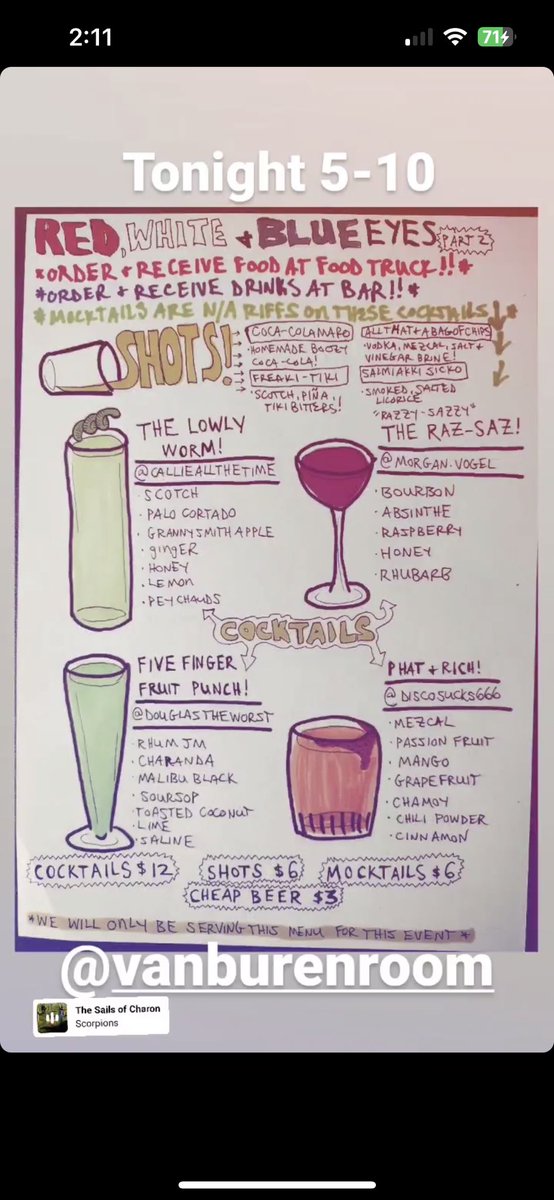 2:11
71
Tonight 5-10
RED, WHITE + BLUE EYES PART 2
*ORDER + RECEIVE FOOD AT FOOD TRUCK!!*
*ORDER + RECEIVE DRINKS AT BAR!!*
*MOCKTAILS ARE N/A RIFFS ON THESE COCKTAILS*
SHOTS!
COCA-COLAMARO
·HOMEMADE BOOZY
COCA-COLA!
FREAKI-TIKI
·SCOTCH, PIÑA,
TIKI BITTERS!
ALL THAT + A BAG OF CHIPS
·VODKA, MEZCAL, SALT +
VINEGAR BRINE!
SALMIAKKI SICKO
·SMOKED, SALTED
LICORICE
THE LOWLY
WORM!
@CALLIEALLTHETIME
·SCOTCH
·PALO CORTADO
·GRANNY SMITH APPLE
·ginGER
·HONEY
·LEMON
·PEYCHAUDS
"RAZZY-SAZZY"
THE RAZ-SAZ!
@MORGAN.VOGEL
·BOURBON
·ABSINTHE
·RASPBERRY
·HONEY
·RHUBARB
COCKTAILS
FIVE FINGER
FRUIT PUNCH!
@DOUGLASTHEWORST
·RHUM JM
·CHARANDA
·MALIBU BLACK
·SOURSOP
·TOASTED COCONUT
·LIME
·SALINE
PHAT + RICH!
@DISCOSUCKS666
·MEZCAL
·PASSION FRUIT
·MANGO
·GRAPEFRUIT
·CHAMOY
·CHILI POWDER
·CINNAMON
COCKTAILS $12
SHOTS $6
MOCKTAILS $6
CHEAP BEER $3
*WE WILL ONLY BE SERVING THIS MENU FOR THIS EVENT*
@vanburenroom
The Sails of Charon
Scorpions